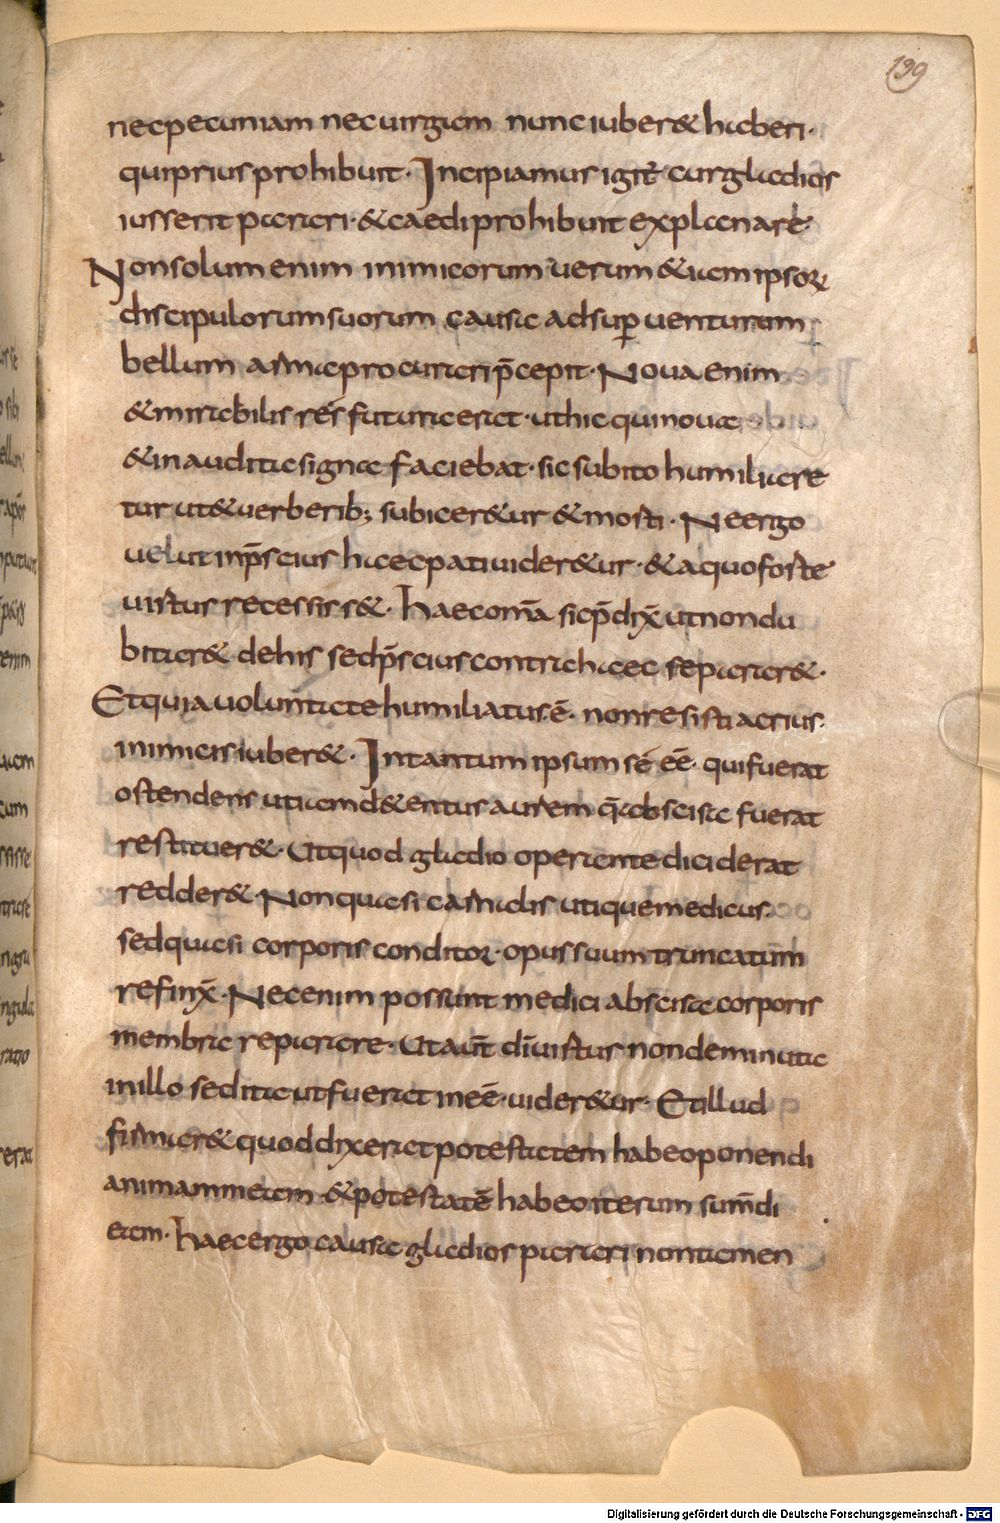 139
nec pecuniam nec uirgam nunc iuber& haberi·
qui prius prohibuit· Incipiamus igit̄ cur gladios
iusserit parari· & caedi prohibuit explanare
Non solum enim inimicorum uerum &iam ipsoꝝ
discipulorum suorum causa ad sup̱uenturum
bellum arma procurari p̄cepit· Noua enim
& mirabilis res futura erat· ut hic qui noua
& inaudita signa faciebat· sic subito humiliare
tur ut & uerberib; subicer&ur & morti· Ne ergo
uelut inp̄scius haec pati uider&ur· & a quo forte
uirtus recessiss&· haec om̄a sic p̄dix̄ ut non du
bitar& de his sed p̄scius contra haec se parar&·
Et quia uoluntate humiliatus ē· non resisti acrius
inimicis iuber&· In tantum ipsum sē eē· qui fuerat
ostendens ut iam d&entus aurem q̄ abscisa fuerat
restituer&· Ut quod gladio operante diciderat
redder&· Non quasi carnalis utique medicus·
sed quasi corporis conditoꝛ· opus suum truncatum
refinx̄· Nec enim possunt medici abscisa corporis
membra reparare· Ut aūt diuirtus non deminuta
in illo sed ita ut fuerat ineē· uider&ur· Et illud
firmar& quod dixerat potestatem habeo ponendi
animam meam & potestatē habeo iterum sum̄di
eam· haec ergo causa gladios parari non tamen
Digitalisierung gefördert durch die Deutsche Forschungsgemeinschaft - DFG